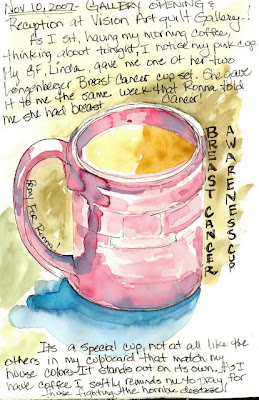 Nov 10, 2007- GALLERY OPENING &
Reception at Vision Art quilt Gallery!
As I sit, having my morning coffee,
thinking about tonight, I notise my pink cup.
My GF, Linda, gave me one of her two
Longenberger Breast Cancer cup set. She gave
it to me the same week that Ronna told
me she had breast Cancer!
PRAY FOR Ronna!
BREAST CANCER
AWARENESS CUP
Its a special cup, not at all like the
others in my cupboard that match my
house colors. It stands out on its own. As I
have coffee I softly reminds me to pray, for
those fighting the horrible desease!